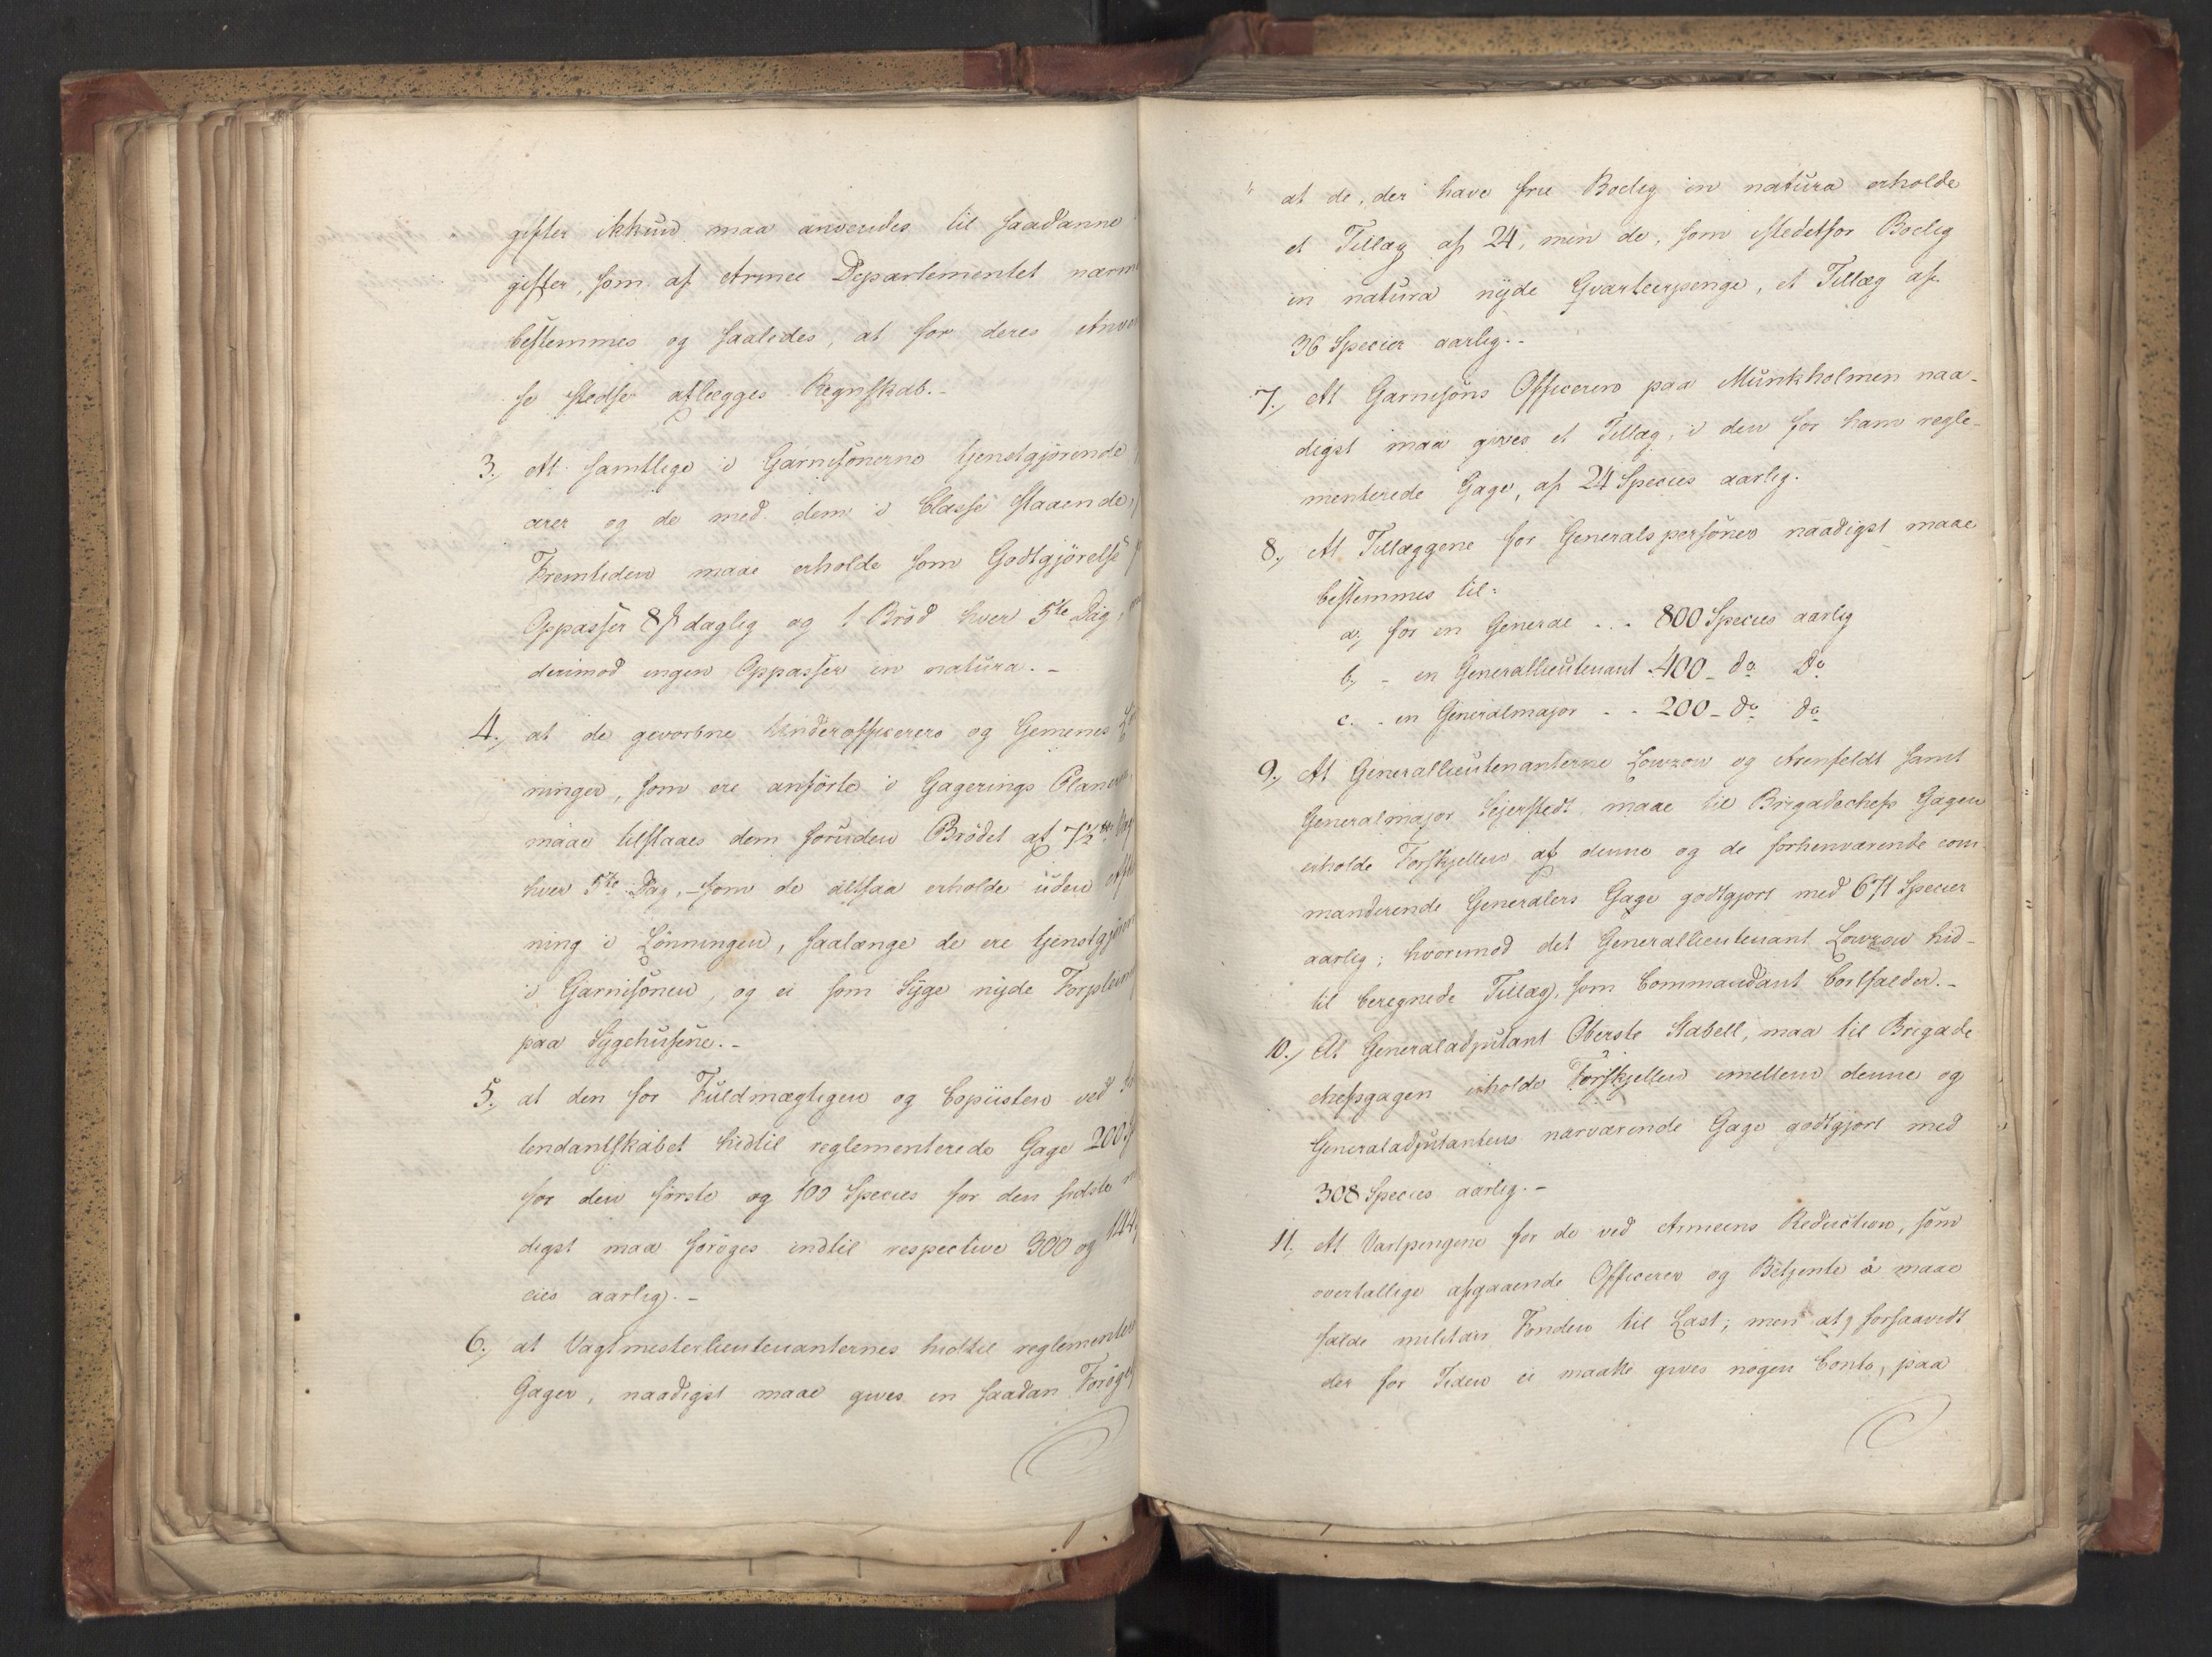 gifter ikkun maa anvendes til saadanne
gifter, som af Armee Departementet nærm
bestemmes og saaledes, at for deres Anven
se stedse aflægges Regnskab.-
3., At samtlige i Garnisonerne tjenstgjørende
ærer og de med dem i Classe staaende,
Fremtiden maae erholde som Godtgjørelse
Oppasser 8 ß daglig og 1 Brød hver 5te Dag,
derimod ingen Oppasser in natura.-
4., at de gevorbne Underofficerers og Gemenes Løn
ninger, som ere anførte i Gagerings Planerne,
maae tilstaaes dem foruden Brødet af 7½
hver 5te Dag,- som de altsaa erholde uden
ning i Lønningen, saalænge de ere tjenstgjøren
i Garnisonen, og ei som Syge nyde Forplein
paa Sygehusene.-
5., at den for Fuldmægtigen og Copiisten ved
tendantskabet hidtil reglementerede Gage 200
for den første og 100 Species for den sidste
digst maa forøges indtil respective 300 og 144
cies aarlig.-
6., at Vagtmesterlieutenanternes hidtil reglementere
Gager, naadigst maae gives en saadan Forøgel
at de, der have frie Boelig in natura erholde
et Tillæg af 24, men de, som istedetfor Boelig
in natura nyde Qvarteerpenge, et Tillæg af
36 Specier aarlig.-
7., At Garnisons Officeren paa Munkholmen naa-
digst maa gives et Tillæg, i den for ham regle-
menterede Gage, af 24 Species aarlig.
8., At Tillæggene for Generalspersoner naadigst maae
bestemmes til:
a, for en General . . - 800 Species aarlig
b, - en Generallieutenant - 400 - do do
c. - en Generalmajor - - 200 - do do
9., At Generallieutenanterne Lowzow og Arenfeldt samt
Generalmajor Sejerstedt maae til Brigadechefs Gagen
erholde Forskjellen af denne og de forhenværende com
manderende Generalers Gage godtgjort med 671 Specier
aarlig; hvorimod det Generallieutenant Lowzow hid-
til beregnede Tillæg, som Commandant bortfalder.-
10., At Generaladjutant Oberste Stabell, maa til Brigade
chefsgagen erholde Forskjellen imellem denne og
Generaladjutantens nærværende Gage godtgjort med
308 Species aarlig.-
11., At Vartpengene for de ved Armeens Reduction, som
overtallige afgaaende Officerer og Betjente ei maae
falde militair Fonden til Last; men at, forsaavidt
der for Tiden ei maatte gives nogen Conto, paa